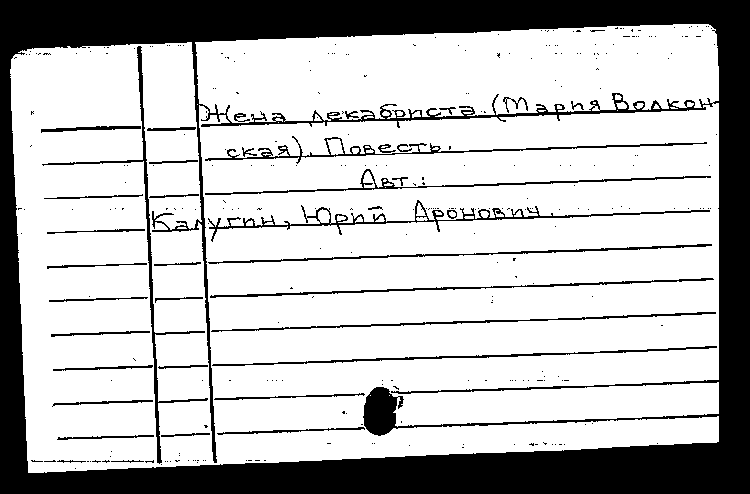 Жена декабриста. (Мария Волкон-
ская). Повесть.
Авт.:
Калугин, Юрий Аронович.